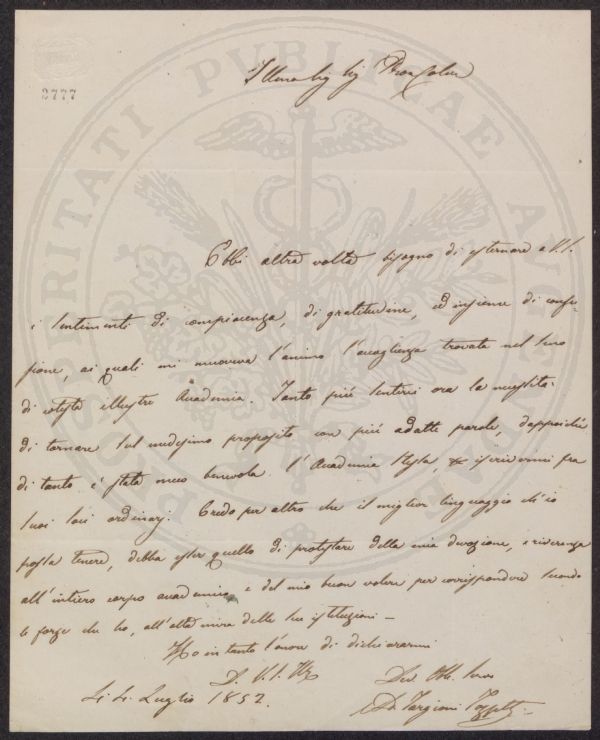 2777
PROSPERITATI PUBLICAE AUGENDAE
Illmo Sig Sig Pron Colmo
Ebbi altra volta bisogno di esternare a V.S.
i sentimenti di compiacenza, di gratitudine, ed insieme di confu-
sione, ai quali mi muoveva l'animo l'accoglienza trovata nel seno
di cotesta illustre Accademia. Tanto più sentirei ora la necessità
di tornare sul medesimo proposito con più adatte parole, dappoichè
di tanto è stata meco benevola l'Accademia stessa, da iscrivermi fra
suoi soci ordinarj. Credo per altro che il miglior linguaggio ch'io
possa tenere, debba esser quello di protestare della mia devozione, e riverenza
all'intiero corpo accademico, e del mio buon volere per corrispondere secondo
le forze che ho, all'alta mira delle sue istituzioni —
Ho intanto l'onore di dichiararmi
D. V. S. Ill
Li 4. Luglio 1852.
Dev. Obb. Servo
Ad. Targioni Tozzetti